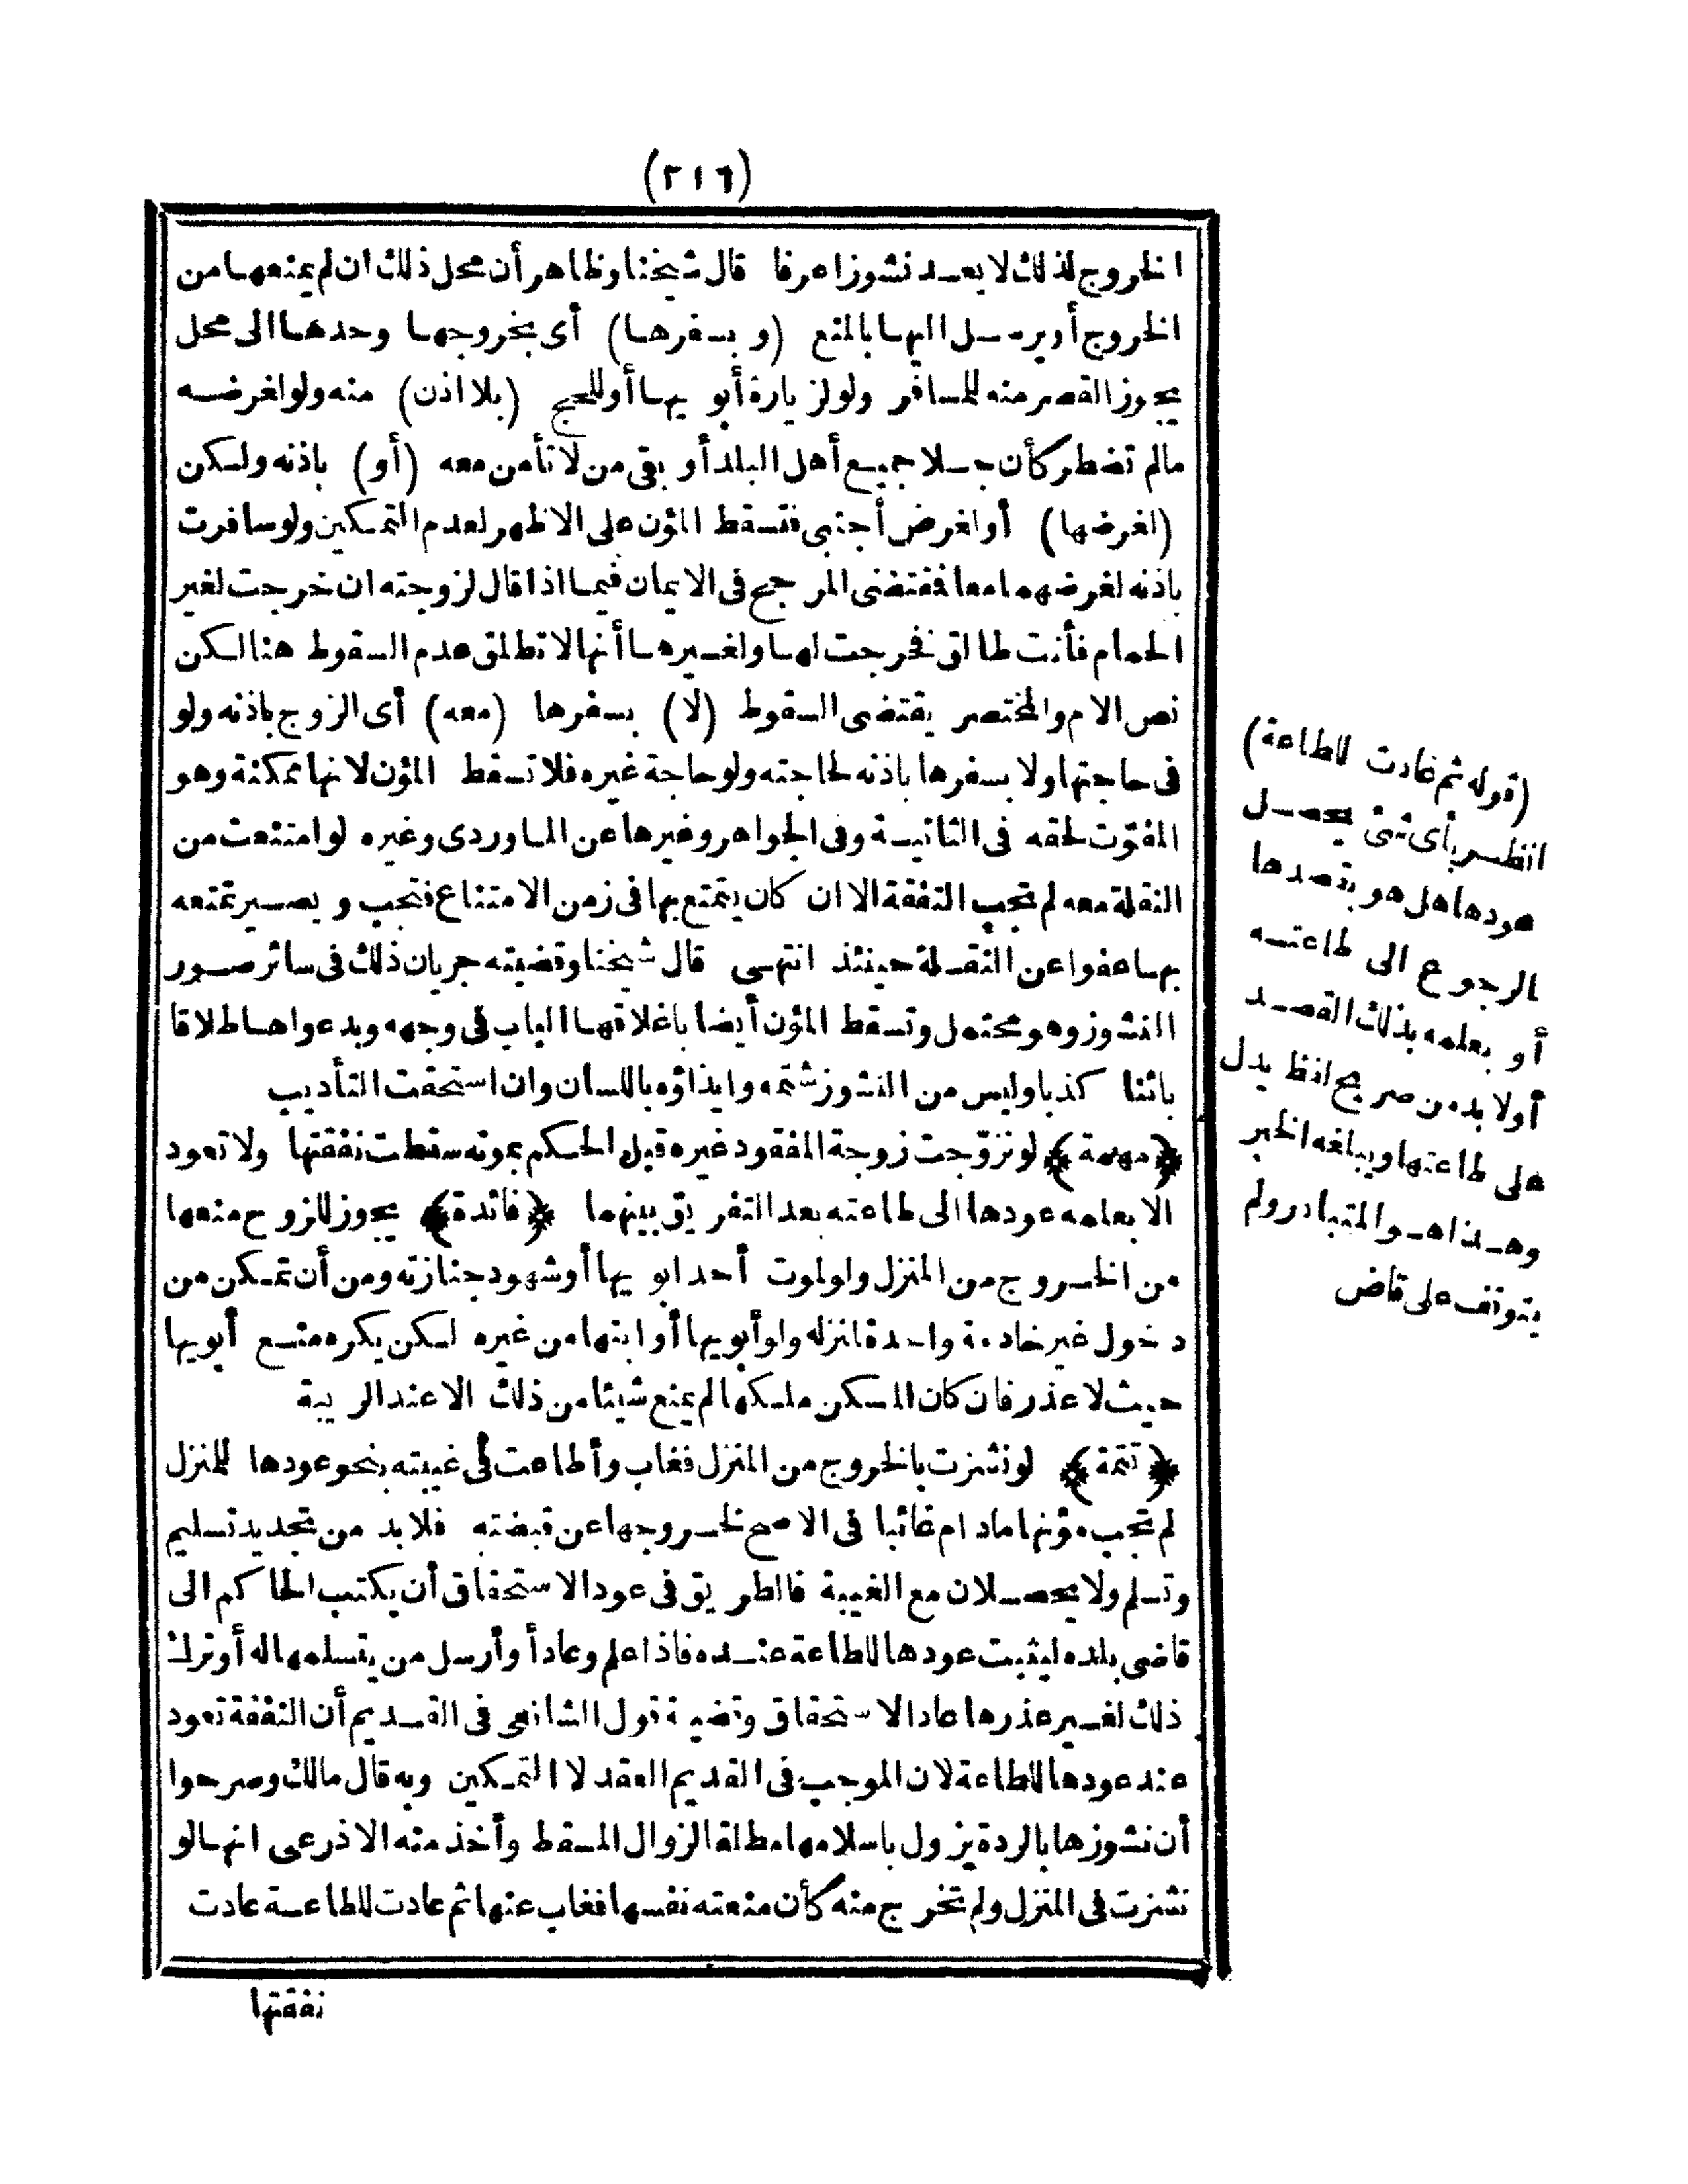 (٢١٦)
الخروج لذلك لا يعد نشوزا عرفا قال شيخنا وظاهر أن محل ذلك ان لم يمنعها من
الخروج أو يرسل اليها بالمنع (و بسفرها) أى بخروجها وحدها الى محل
يجوز القصر منه للمسافر ولو لزيارة أبويها أو للحج (بلا اذن) منه ولو لغرضه
مالم تضطر كأن جلا جميع أهل البلد أو بقى من لا تأمن معه (أو) باذنه ولكن
(لغرضها) أو لغرض أجنبى فتسقط المؤن على الاظهر لعدم التمكين ولو سافرت
باذنه لغرضهما معا فمقتضى المرجح فى الايمان فيما اذا قال لزوجته ان خرجت لغير
الحمام فأنت طالق فخرجت لها ولغيرها أنها لا تطلق عدم السقوط هنا لكن
نص الام والمختصر يقتضى السقوط (لا) بسفرها (معه) أى الزوج باذنه ولو
فى حاجتها ولا بسفرها باذنه لحاجته ولو حاجة غيره فلا تسقط المؤن لانها ممكنة وهو
المفوّت لحقه فى الثانية وفى الجواهر وغيرها عن الماوردى وغيره لو امتنعت من
النقلة معه لم تجب النفقة الا ان كان يتمتع بها فى زمن الامتناع فتجب ويصير تمتعه
بها عفوا عن النقلة حينئذ انتهى قال شيخنا وقضيته جريان ذلك فى سائر صور
النشوز وهو محتمل وتسقط المؤن أيضا باغلاقها الباب فى وجهه وبدعواها طلاقا
بائنا كذبا وليس من النشوز شتمه وايذاؤه باللسان وان استحقت التأديب
﴿مهمة﴾ لو تزوّجت زوجة المفقود غيره قبل الحكم بموته سقطت نفقتها ولا تعود
الا بعلمه عودها الى طاعته بعد التفريق بينهما ﴿فائدة﴾ يجوز للزوج منعها
من الخروج من المنزل ولو لموت أحد ابويها أو شهود جنازته ومن أن تمكن من
دخول غير خادمة واحدة لمنزله ولو أبويها أو ابنها من غيره لكن يكره منع أبويها
حيث لا عذر فان كان المسكن ملكها لم يمنع شيئا من ذلك الا عند الريبة
﴿تتمة﴾ لو نشزت بالخروج من المنزل فغاب وأطاعت فى غيبته بنحو عودها للمنزل
لم تجب مؤنها مادام غائبا فى الاصح لخروجها عن قبضته فلا بد من تجديد تسليم
وتسلم ولا يحصلان مع الغيبة فالطريق فى عود الاستحقاق أن يكتب الحاكم الى
قاضى بلده ليثبت عودها للطاعة عنده فاذا علم وعاد أو أرسل من يتسلمها له أو ترك
ذلك لغير عذرها عاد الاستحقاق وقضية قول الشافعى فى القديم أن النفقة تعود
عند عودها للطاعة لان الموجب فى القديم العقد لا التمكين وبه قال مالك وصرحوا
أن نشوزها بالردة يزول باسلامها مطلقا لزوال المسقط وأخذ منه الاذرعى انها لو
نشزت فى المنزل ولم تخرج منه كأن منعته نفسها فغاب عنها ثم عادت للطاعة عادت
نفقتها
(قوله ثم عادت للطاعة)
انظر بأى شئ يحصل
عودها هل هو بقصدها
الرجوع الى طاعته
أو بعلمه بذلك القصد
أولا بد من صريح لفظ يدل
على طاعتها ويبلغه الخبر
وهذا هو المتبادر ولم
يتوقف على قاض